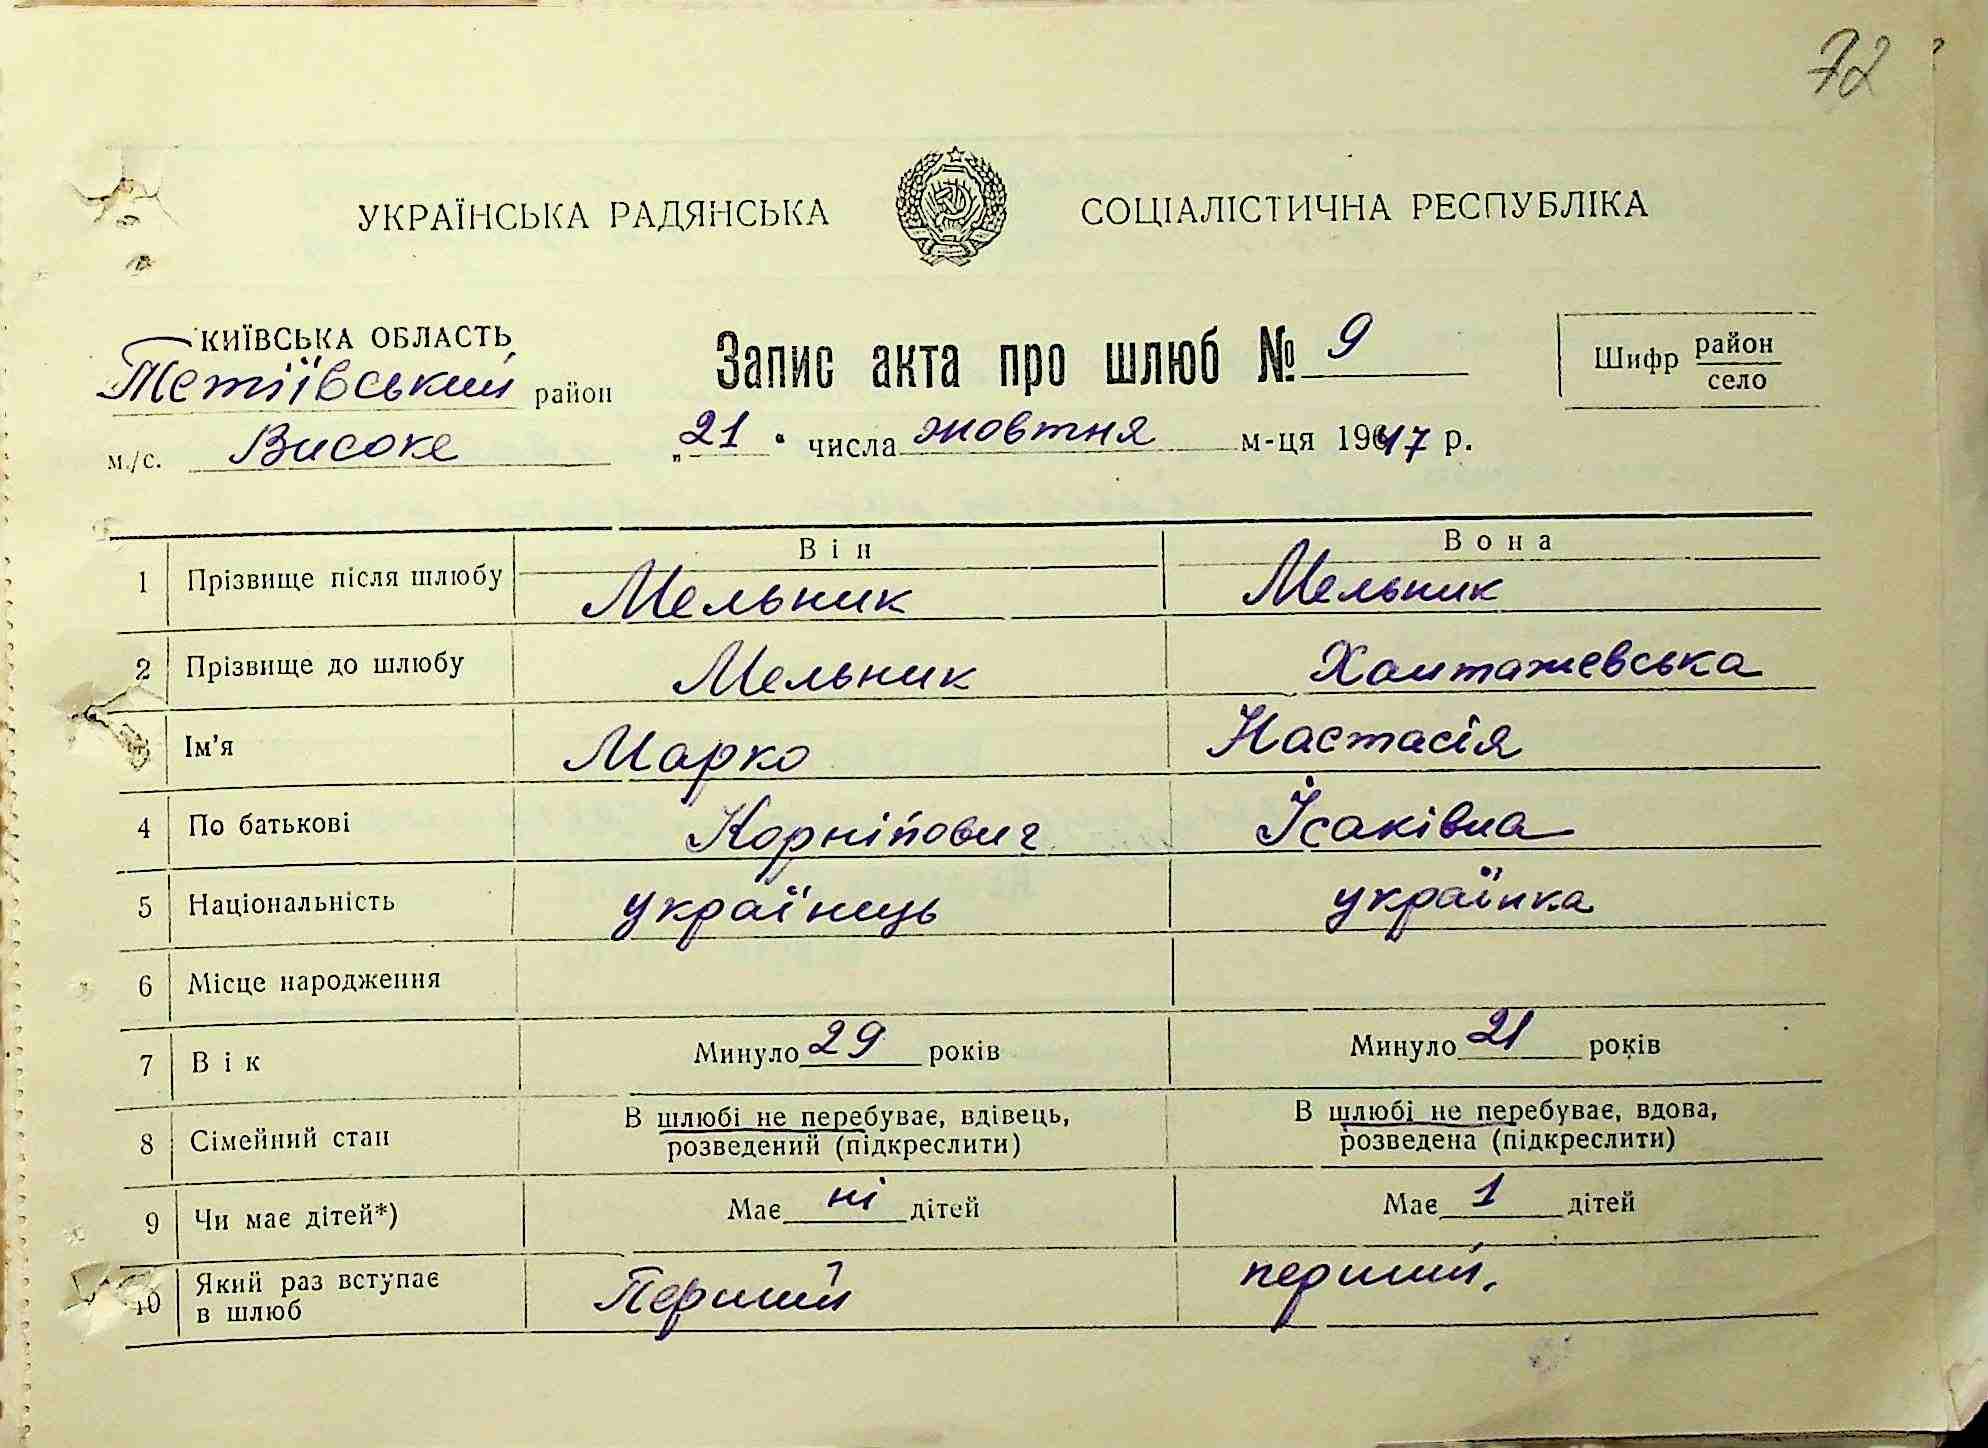 72
УКРАЇНСЬКА РАДЯНСЬКА СОЦІАЛІСТИЧНА РЕСПУБЛІКА
КИЇВСЬКА ОБЛАСТЬ
Тетіївський район
м./с. Високе
Запис акта про шлюб № 9
„21" числа жовтня м-ця 1947 р.
Шифр район
село
Він Вона
1 Прізвище після шлюбу Мельник Мельник
2 Прізвище до шлюбу Мельник
Ім'я Марко Настасія
4 По батькові Корнійович Ісаківна
5 Національність українець українка
6 Місце народження
7 Вік Минуло 29 років Минуло 21 років
8 Сімейний стан В шлюбі не перебуває, вдівець, В шлюбі не перебуває, вдова,
розведений (підкреслити) розведена (підкреслити)
9 Чи має дітей*) Має ні дітей Має 1 дітей
10 Який раз вступає
в шлюб Перший перший.